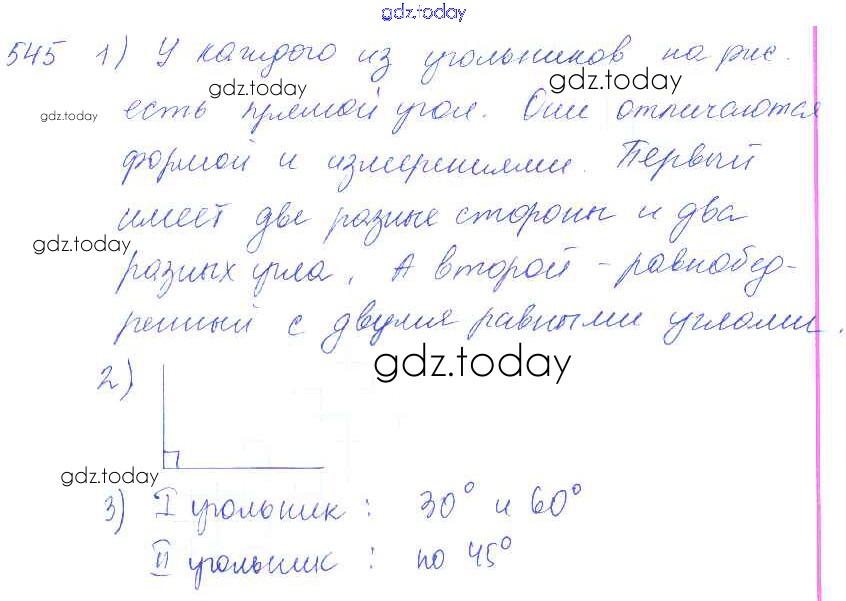 gdz.today
545 1) У каждого из угольников на рис.
gdz.today
gdz.today
gdz.today
есть прямой угол. Они отличаются
формой и измерениями. Первый
имеет две разные стороны и два
gdz.today
разных угла, А второй - равнобед-
ренный с двумя равными углами.
gdz.today
2)
gdz.today
3) I угольник: 30° и 60°
II угольник: по 45°